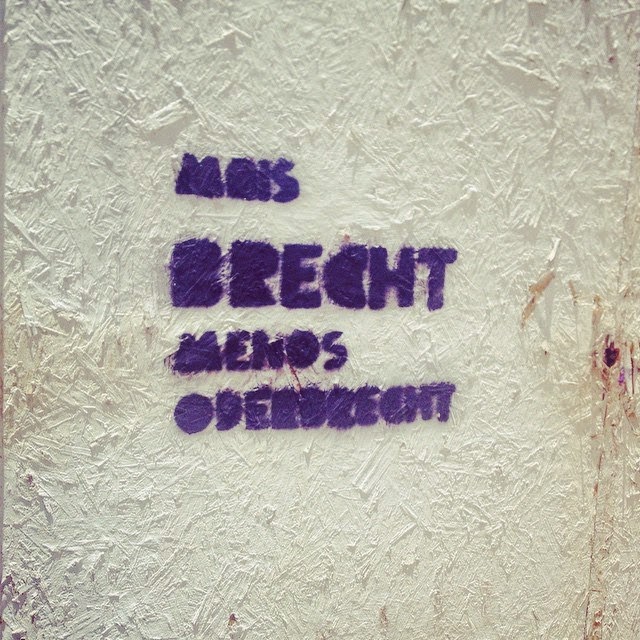 MAIS
BRECHT
MENOS
ODEBRECHT